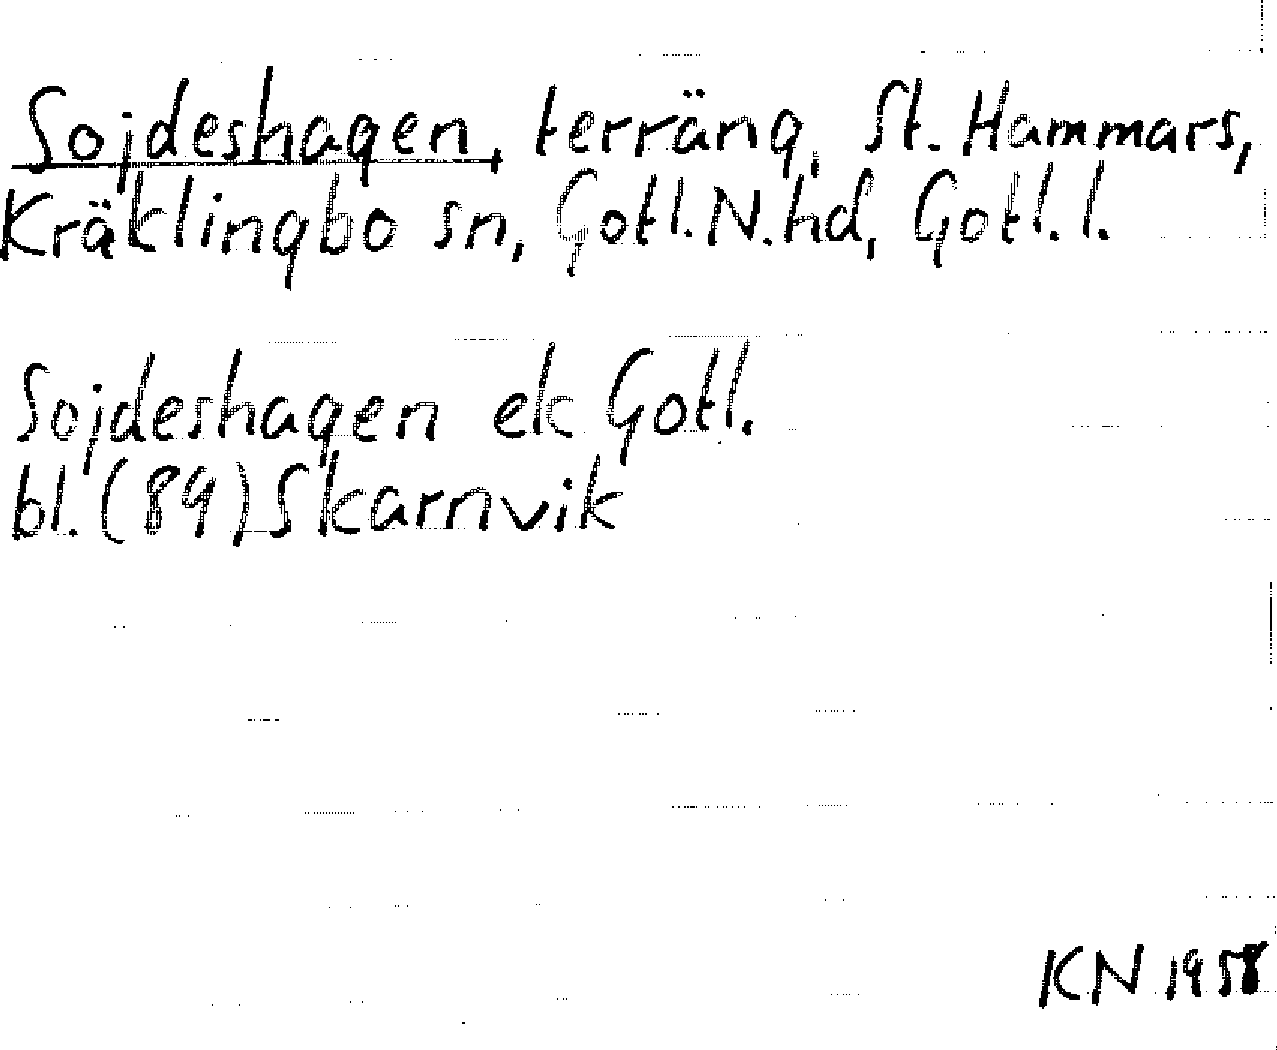 Sojdeshagen, terräng, St. Hammars,
Kräklingbo sn, Gotl. N. hd, Gotl. l.
Sojdeshagen ek Gotl.
bl. (89) Skarnvik
KN 1958